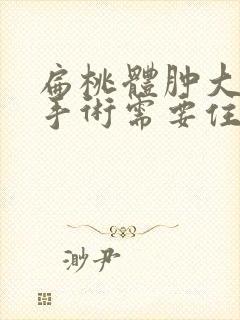 扁桃體肿大
手術需要住
渺尹